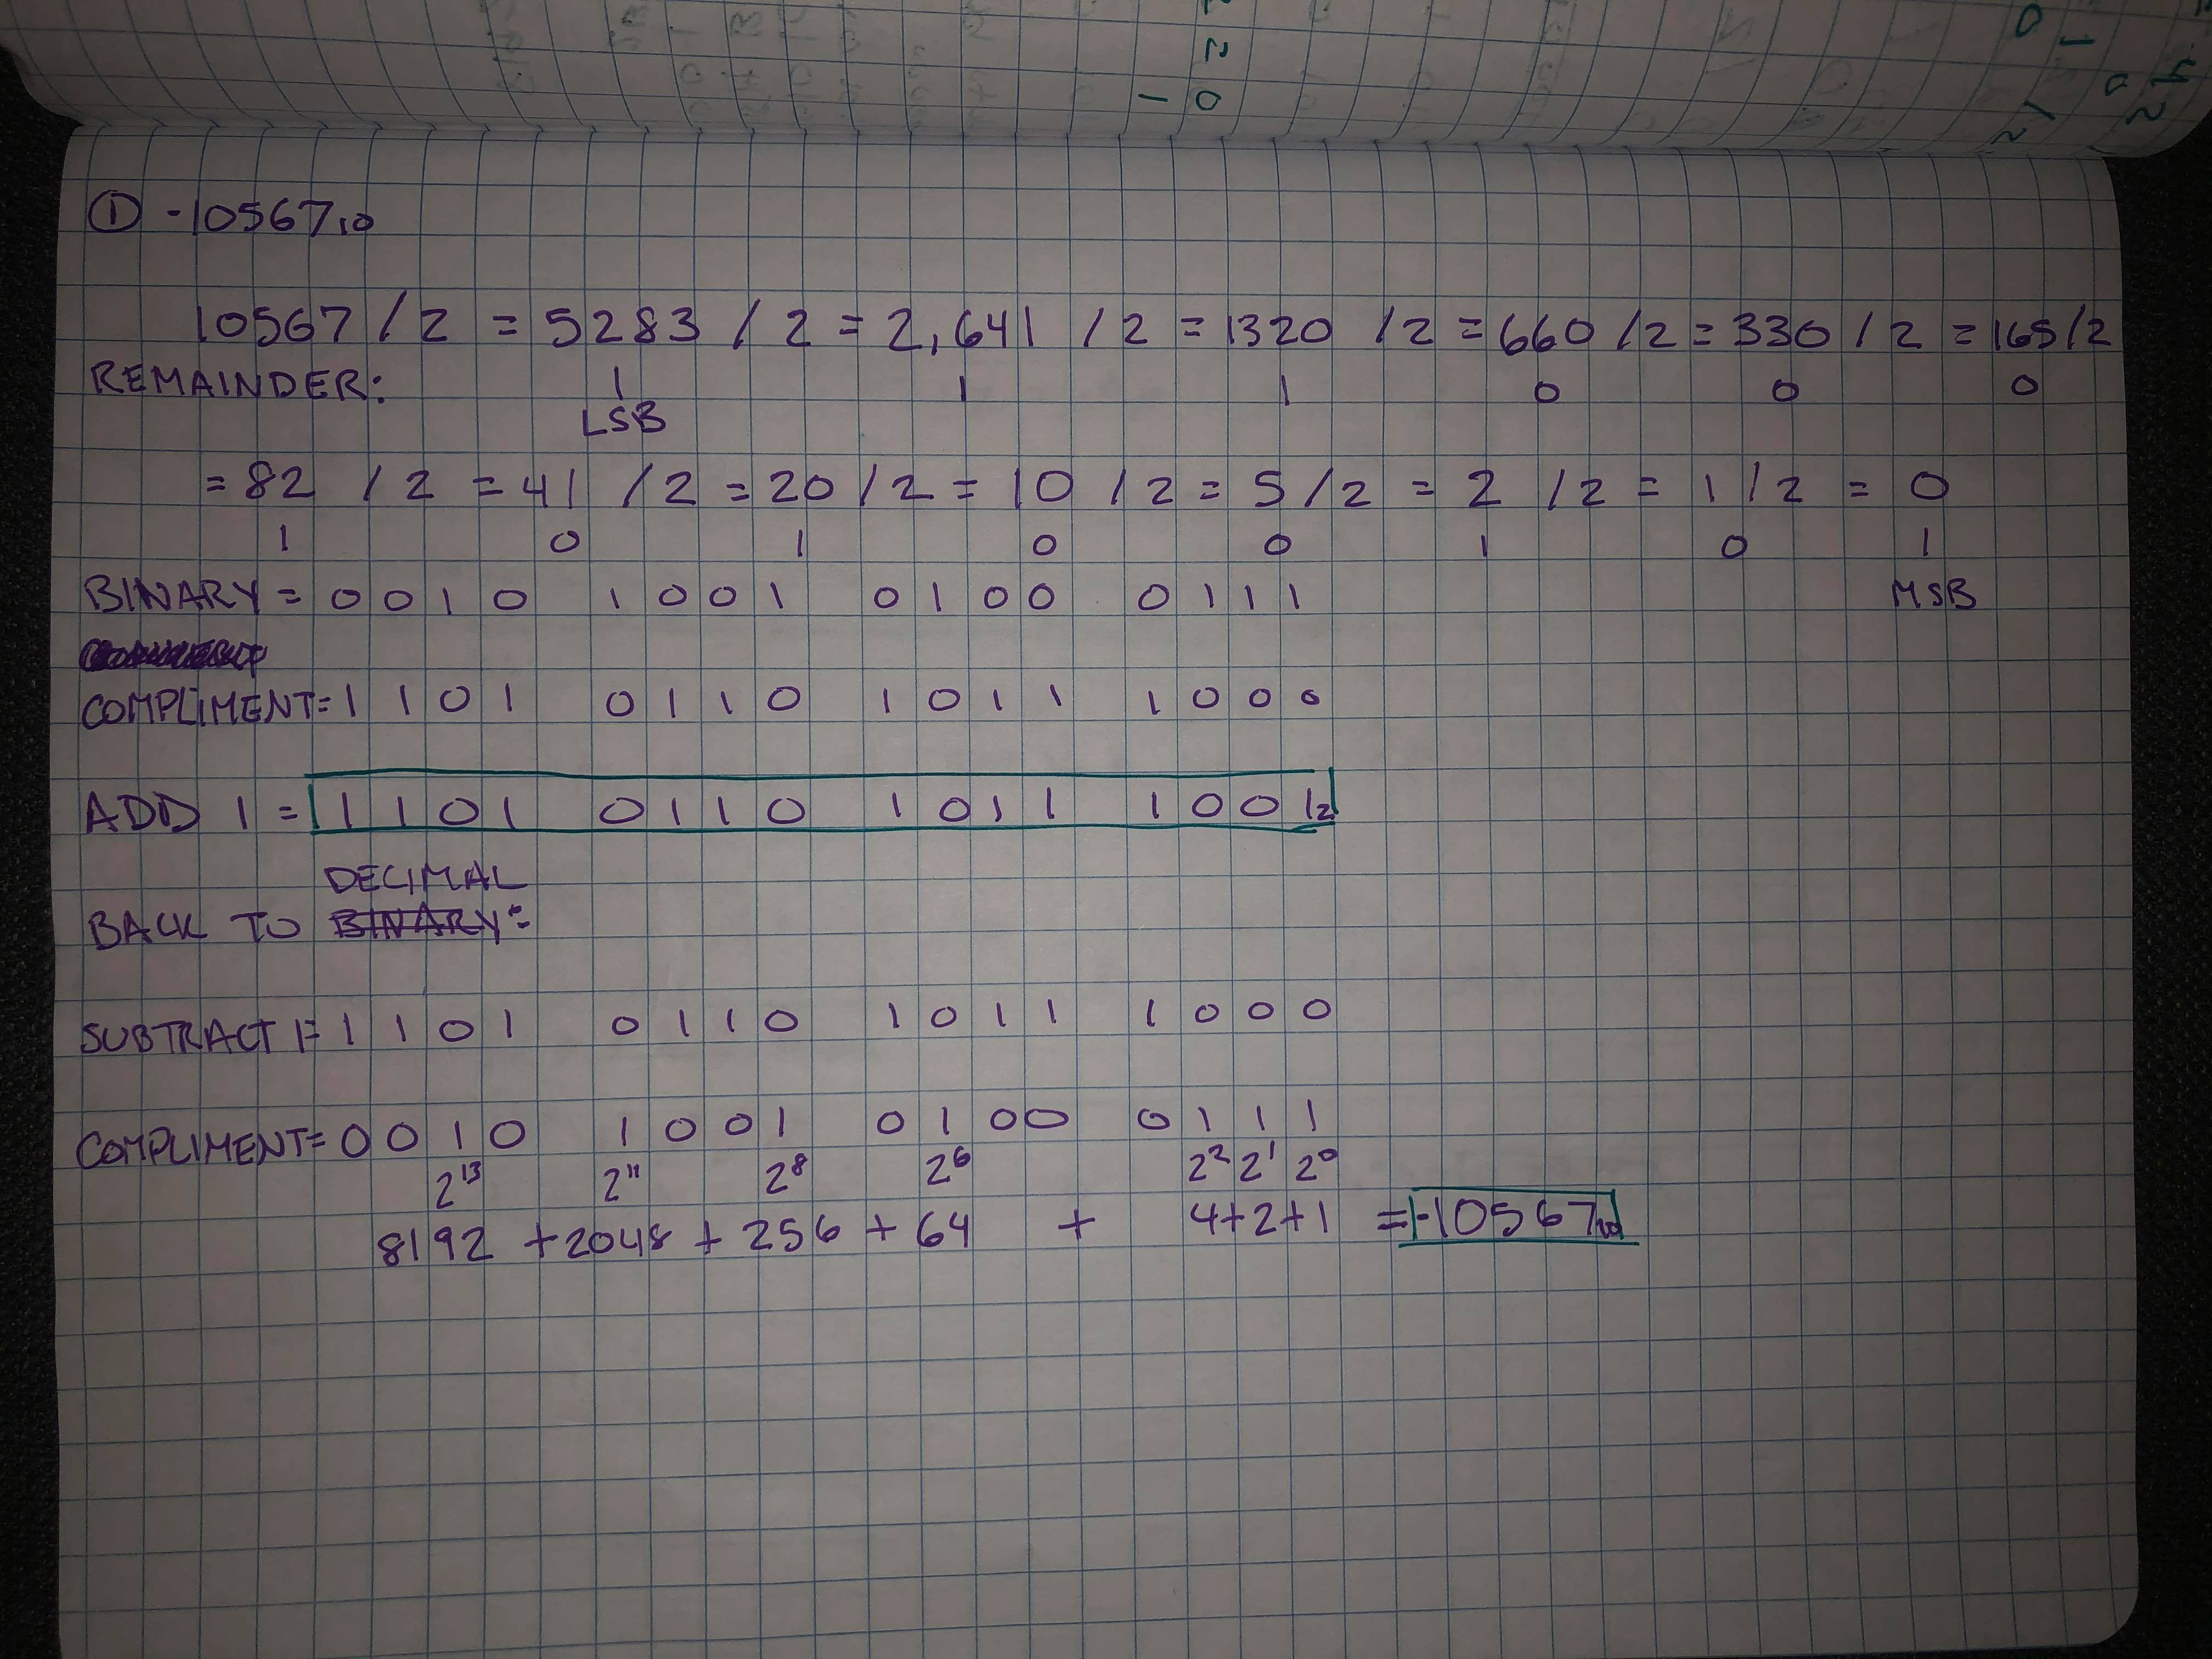 ① -10567₁₀
10567 / 2 = 5283 / 2 = 2,641 / 2 = 1320 / 2 = 660 / 2 = 330 / 2 = 165 / 2
REMAINDER: 1 1 1 0 0 0
LSB
= 82 / 2 = 41 / 2 = 20 / 2 = 10 / 2 = 5 / 2 = 2 / 2 = 1 / 2 = 0
1 0 1 0 0 1 0 1
BINARY = 0 0 1 0 1 0 0 1 0 1 0 0 0 1 1 1 MSB
COMPLIMENT = 1 1 0 1 0 1 1 0 1 0 1 1 1 0 0 0
ADD 1 = 1 1 0 1 0 1 1 0 1 0 1 1 1 0 0 1₂
DECIMAL
BACK TO BINARY:
SUBTRACT 1 = 1 1 0 1 0 1 1 0 1 0 1 1 1 0 0 0
COMPLIMENT = 0 0 1 0 1 0 0 1 0 1 0 0 0 1 1 1
2¹³ 2¹¹ 2⁸ 2⁶ 2² 2¹ 2⁰
8192 + 2048 + 256 + 64 + 4+2+1 = -10567₁₀